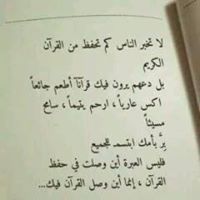 لا تخبر الناس كم تحفظ من القرآن
الكريم
بل دعهم يرون فيك قرآناً أطعم جائعاً
اكس عارياً ، ارحم يتيماً ، سامح
مسيئاً
برَّ بأمك ابتسمْ للجميع
فليس العبرة أين وصلت في حفظ
القرآن ، إنما أين وصل القرآن فيك...